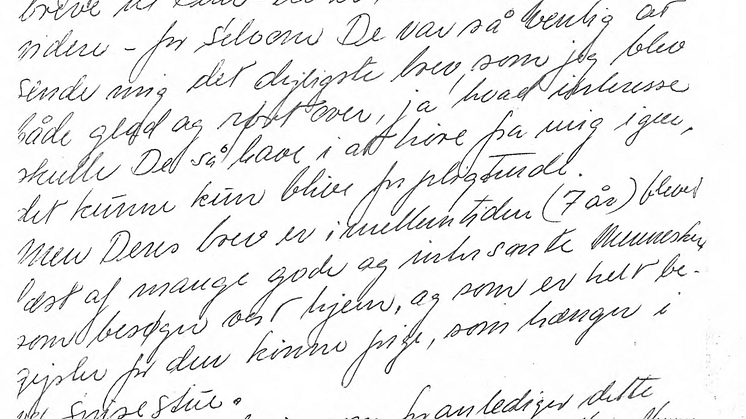 videre - for selvom De var så venlig at
sende mig det dejligste brev, som jeg blev
både glad og rørt over, ja hvad interesse
skulle De så have i at høre fra mig igen,
det kunne kun blive for pligtende.
Men Deres brev er i mellemtiden (7 år) blevet
læst af mange gode og intersante Mennesker
som besøger vort hjem, og som er helt be-
for den kønne pige, som hænger i
spisestue.
dette